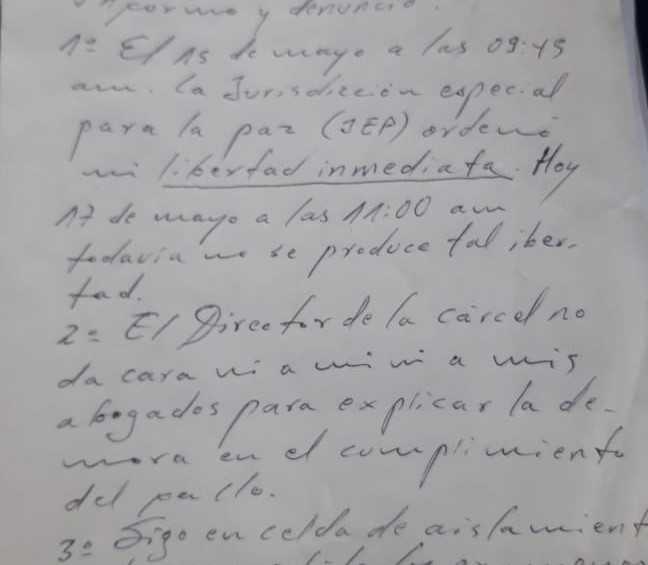 informo y denuncio.
1º El 15 de mayo a las 09:45
am. la Jurisdicción especial
para la paz (JEP) ordenó
mi libertad inmediata. Hoy
17 de mayo a las 11:00 am
todavía no se produce tal iber-
tad.
2º El Director de la cárcel no
da cara ni a mi ni a mis
abogados para explicar la de-
mora en el cumplimiento
del fallo.
3º Sigo en celda de aislamient